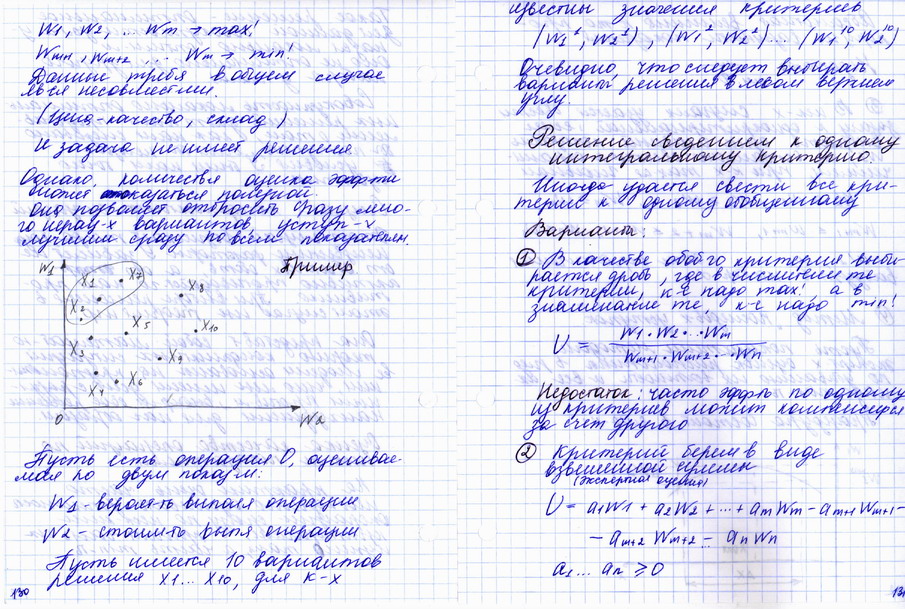 W1, W2, ... Wm → max!
Wm+1, Wm+2 ... Wm → min!
Данные требя в общем случае
явся несовместим.
(Цена-качество, склад)
И задача не имеет решения
Однако, количествя оценка эффти
может оказаться полезной
Она позволяет отбросить сразу мно-
го нерац-х вариантов, уступ-х
лучшим сразу по всем показателям.
W1
Пример
X1
X7
X8
X2
X5
X10
X3
X9
X4
X6
0
W2
Пусть есть операция О, оценивае-
мая по двум показ-м.
W1 - вероят-ть выпол операции
W2 - стоим-ть вып-я операции
Пусть имеется 10 вариантов
решения X1... X10, для к-х
130
известны значения критериев
(W1¹, W2¹), (W1², W2²)... (W1¹⁰, W2¹⁰)
Очевидно, что следует выбирать
варианты решения в левом верхнем
углу.
Решение сведением к одному
интегральному критерию.
Иногда удается свести все кри-
терии к одному обобщенному
Варианты:
① В качестве обоб-го критерия выби-
рается дробь, где в числителе те
критерии, к-е надо max! а в
знаменателе те, к-е надо min!
U = W1·W2·...·Wm
Wm+1·Wm+2·...·Wn
Недостаток: часто эффть по одному
из критериев может
за счет другого
② Критерий берем в виде
взвешенной суммы
(экспертная оценка)
U = a1W1 + a2W2 + ... + amWm - am+1 Wm+1 -
- am+2 Wm+2 - ... anWn
a1 ... an ≥ 0
131